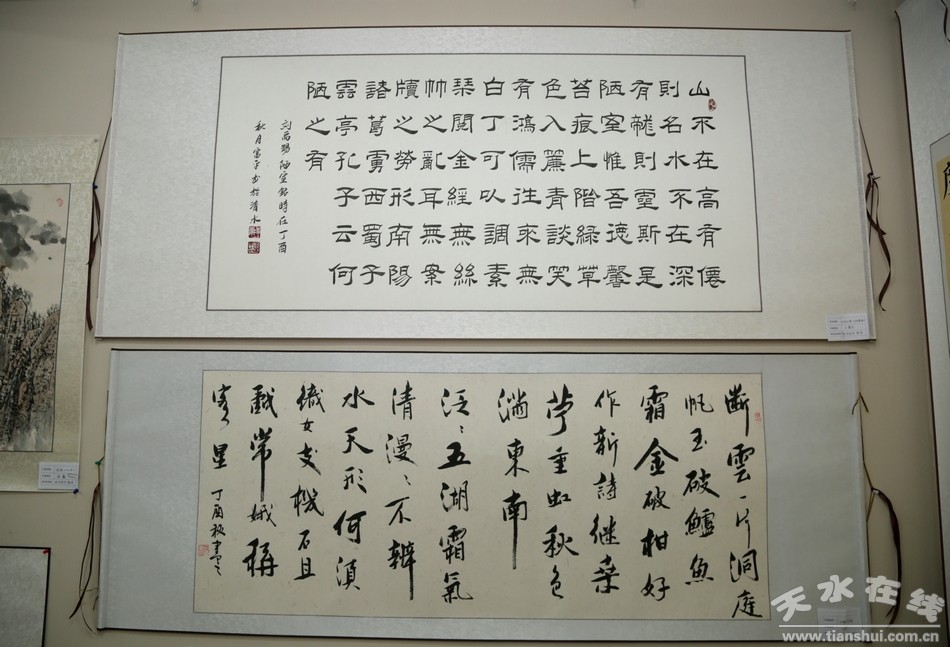 山不在高有僊
則名水不在深
有龍則靈斯是
陋室惟吾德馨
苔痕上階綠草
色入簾青談笑
有鴻儒往來無
白丁可以調素
琴閱金經無絲
竹之亂耳無案
牘之勞形南陽
諸葛廬西蜀子
雲亭孔子云何
陋之有
刘禹錫陋室銘時在丁酉
秋月富平书於清水
斷雲一片洞庭
帆玉破鱸魚
霜金破柑好
作新詩繼桑
苧垂虹秋色
滿東南
泛〻五湖霜氣
清漫〻不辨
水天形何湏
織女支機石且
戲常娥稱
客星
丁酉秋書之
天水在线
www.tianshui.com.cn